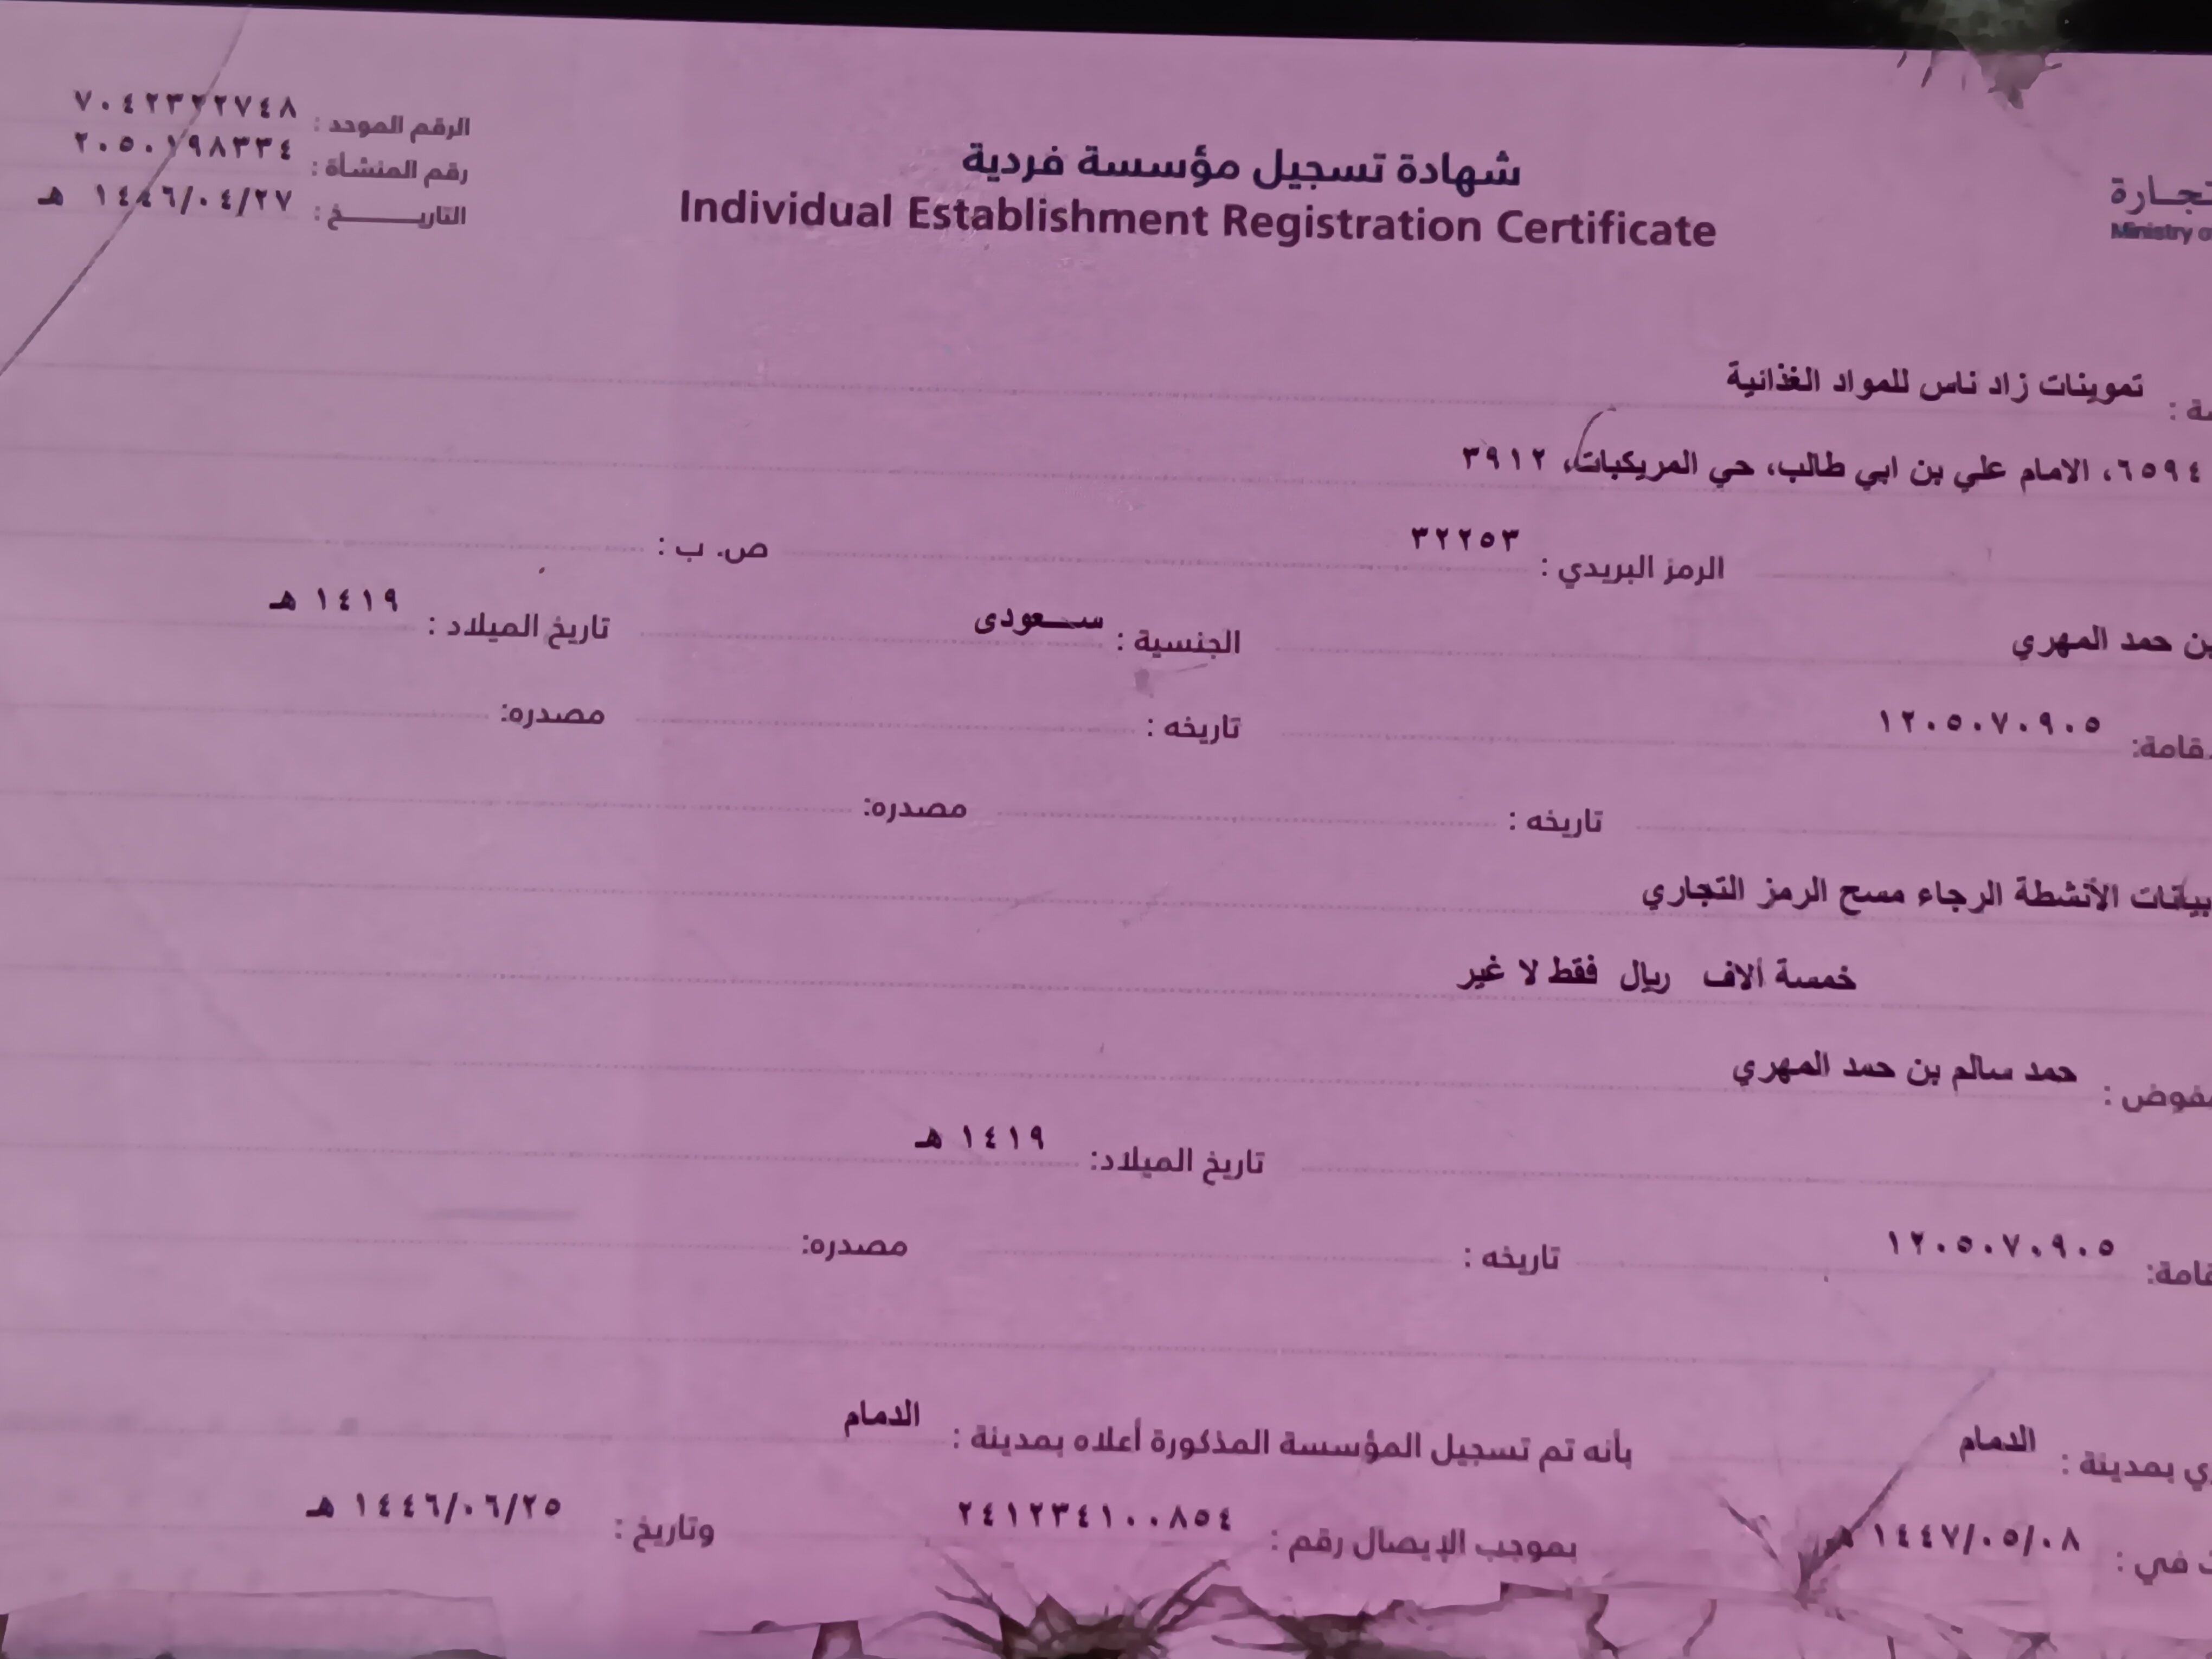 الرقم الموحد : ٧٠٤٢٣٢٢٧٤٨
رقم المنشأة : ٢٠٥٠١٩٨٣٣٤
التاريـــــخ : ١٤٤٦/٠٤/٢٧ هـ
شهادة تسجيل مؤسسة فردية
Individual Establishment Registration Certificate
Ministry
تموينات زاد ناس للمواد الغذائية
٦٥٩٤، الامام علي بن ابي طالب، حي المريكبات، ٣٩١٢
الرمز البريدي : ٣٢٢٥٣ ص. ب :
بن حمد المهري الجنسية : سـعودى تاريخ الميلاد : ١٤١٩ هـ
١٢٠٥٠٧٠٩٠٥ تاريخه : مصدره:
تاريخه : مصدره:
بيانات الأنشطة الرجاء مسح الرمز التجاري
خمسة ألاف ريال فقط لا غير
حمد سالم بن حمد المهري
تاريخ الميلاد: ١٤١٩ هـ
١٢٠٥٠٧٠٩٠٥ تاريخه : مصدره:
بمدينة : الدمام بأنه تم تسجيل المؤسسة المذكورة أعلاه بمدينة : الدمام
في : ١٤٤٧/٠٥/٠٨ هـ بموجب الإيصال رقم : ٢٤١٢٣٤١٠٠٨٥٤ وتاريخ : ١٤٤٦/٠٦/٢٥ هـ